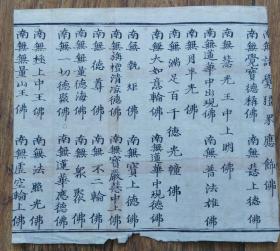 南無覺寶德稱佛 南無慧上德佛
南無慧光王中上明佛
南無蓮華中出現佛 南無普法雄佛
南無月半光佛
南無滿足百千德光幢佛
南無大如意輪佛 南無蓮華中現德佛
南無執炬佛 南無寶上德佛
南無旃檀清涼德佛 南無寶嚴慧中上佛
南無德尊佛 南無不二輪佛
南無無量德海佛 南無眾聚佛
南無一切德嚴佛 南無蓮華應德佛
南無極上中王佛 南無法職光佛
南無無量山王佛 南無虛空輪上佛